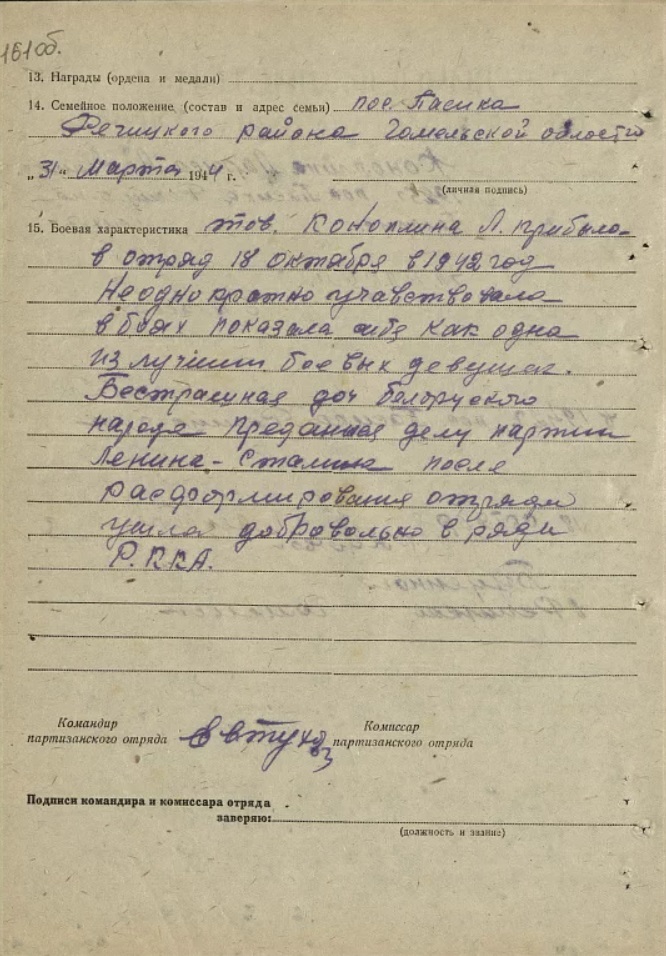 161об.
13. Награды (ордена и медали)
14. Семейное положение (состав и адрес семьи) пос. Пасека
Речицкого района Гомельской области
„31“ Марта 1944 г.
(личная подпись)
15. Боевая характеристика тов. Коноплина Л. прибыла
в отряд 18 октября в 1942 год
Неоднократно учавствовала
в боях показала себя как одна
из лучших боевых девушек.
Бесстрашная доч белоруского
народа преданная делу партии
Ленина-Сталина после
расформирования отряда
ушла добровольно в ряди
Р.ККА.
Командир партизанского отряда Евтухов
Комиссар партизанского отряда
Подписи командира и комиссара отряда
заверяю:
(должность и звание)